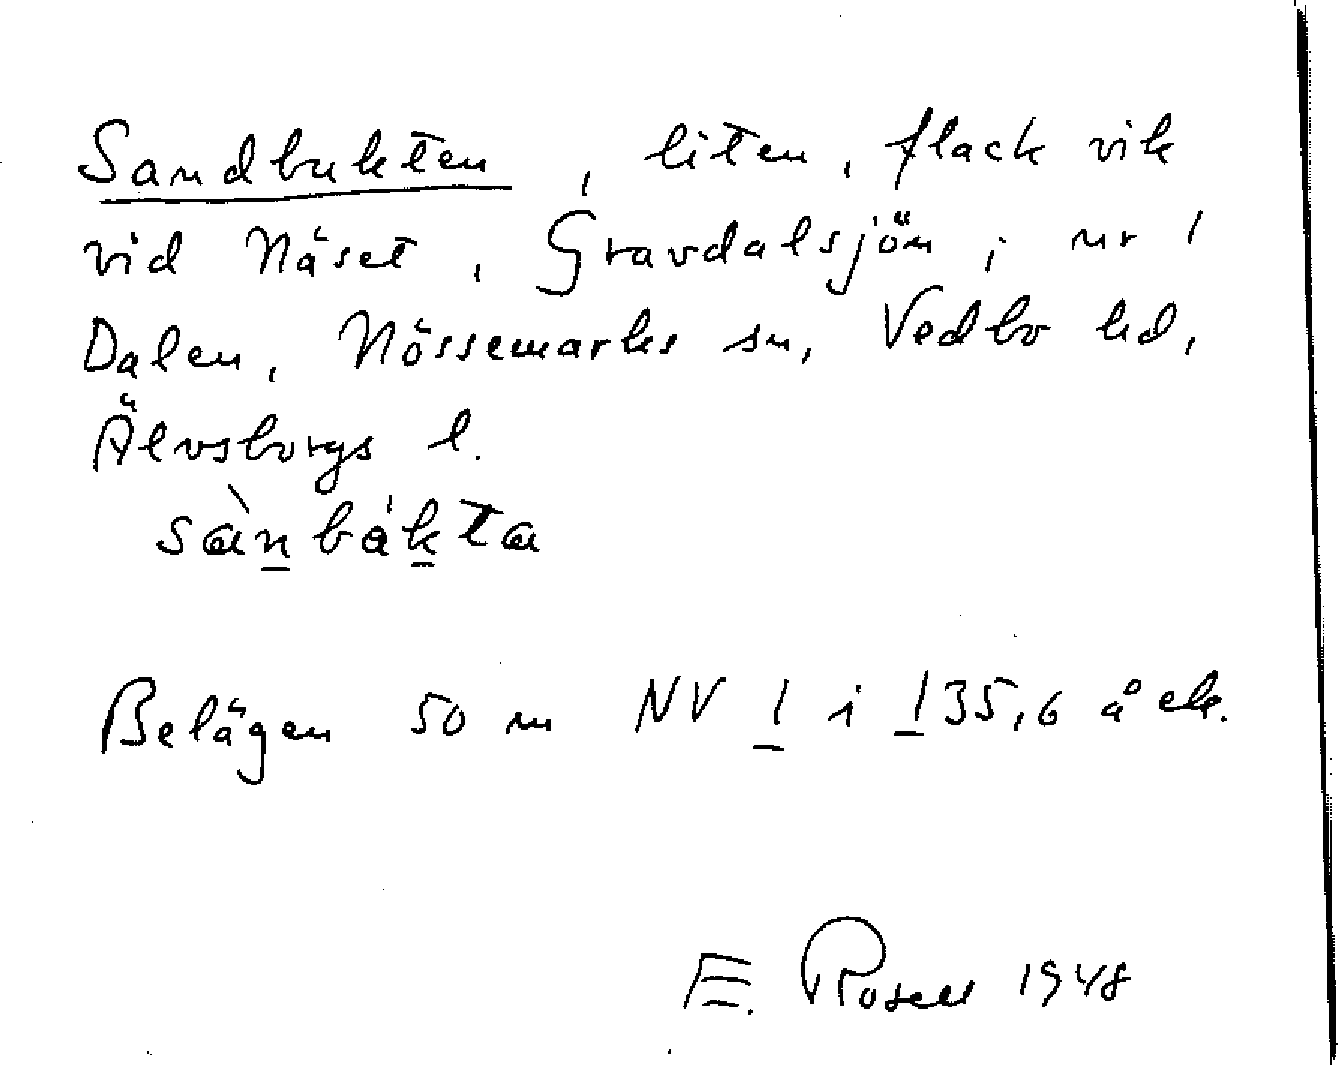 Sandbukten, liten, flack vik
vid Näset, Gravdalsjön, nr 1
Dalen, Nössemarks sn, Vedbo hd,
Älvsborgs l.
sànbákta
Belägen 50 m NV 1 i 135,6 å ek.
E. Rosell 1948